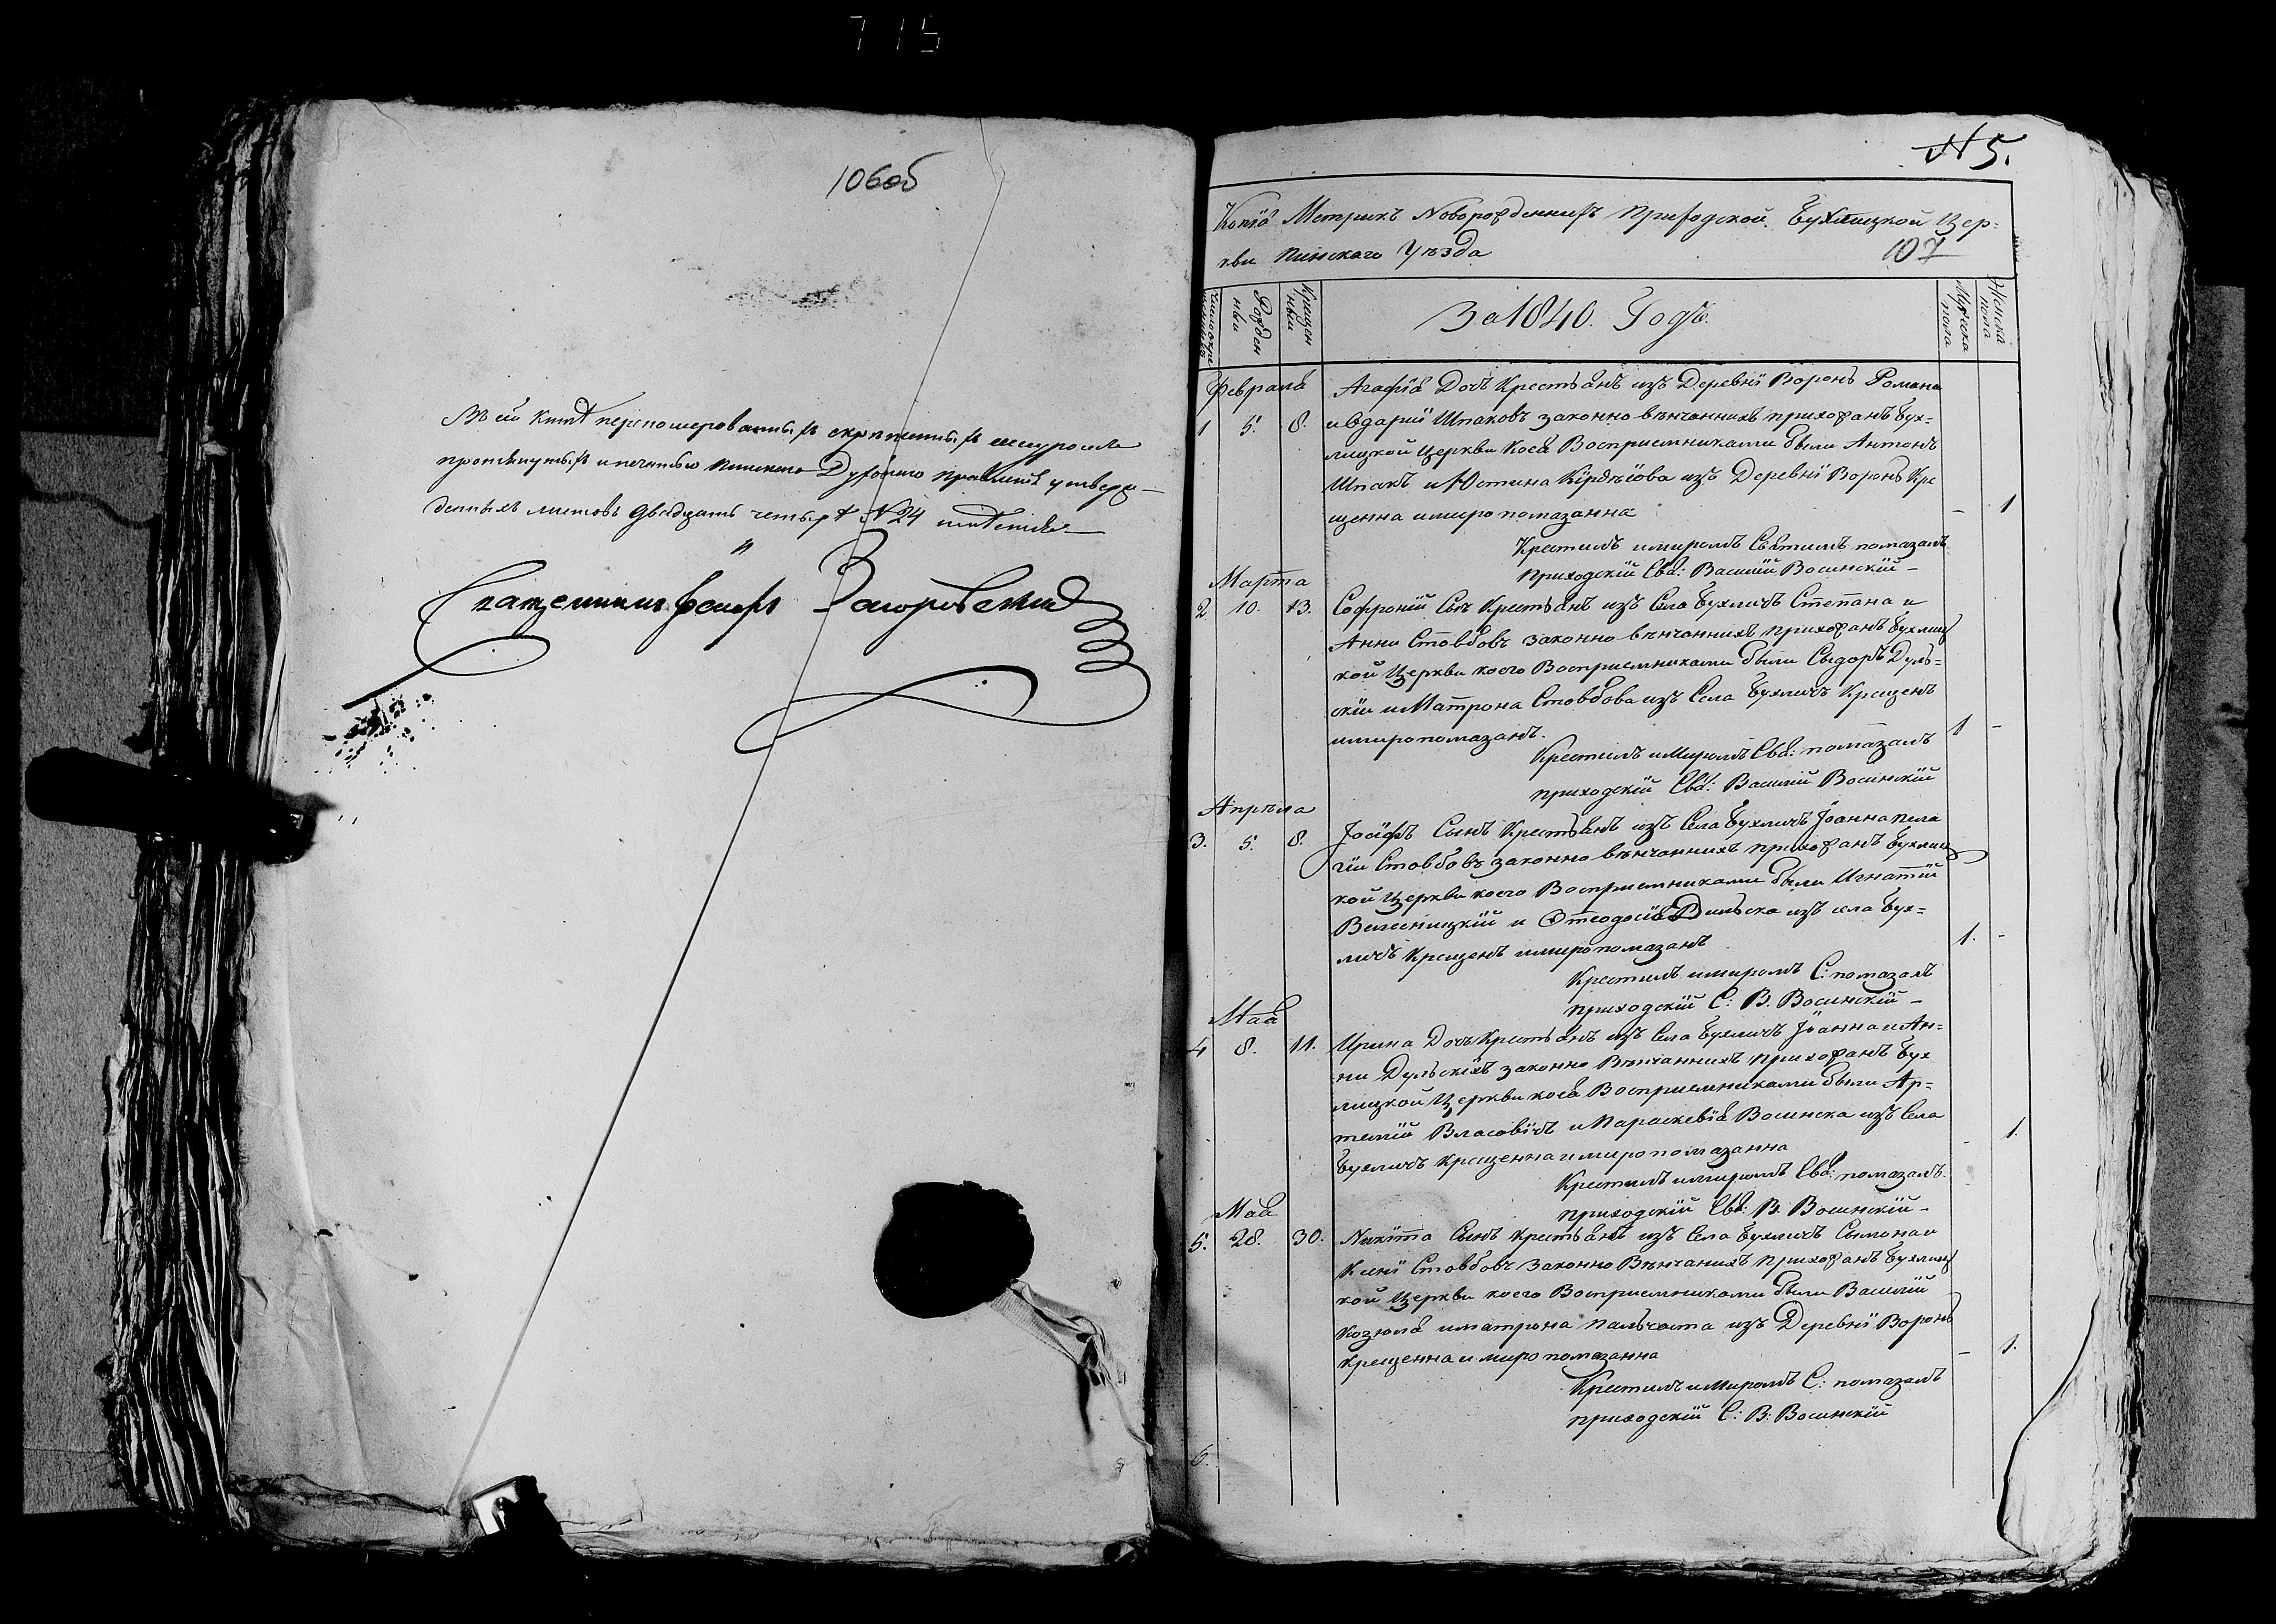 715
106об
Въ сей книгѣ перенумерованныхъ скрепленныхъ шнуромъ
протянутыхъ и печатью Пинскаго Духовного Правленія утверж-
денныхъ листовъ двадцать четыре N 24 имѣется
Священникъ Іосифъ Загоровскій
N 5.
Копіа Метрикъ Новорожденныхъ Приходской Бухлицкой Цер-
кви Пинскаго Уѣзда
107
Рожден
нви
Крещен
нви
За 1840. Годъ.
Мужеска
пола
Женска
пола
Февраля
1 5. 8. Агафіа Дочь Крестьанъ изъ Деревнѣ Воронь Романа
и Єдаріи Шпаковъ законно вѣнчаннихъ прихожанъ Бух-
лицкой Церкви Коеа Восприемниками были Антонъ
Шпакъ и Юстина из Деревнѣ Воронь Кре
щенна и миропомазанна - 1
Крестилъ и миромъ Сватимъ помазалъ
Приходскій Сва: Василій Восинскій -
Марта
2. 10. 13. Софроній Сынъ Крестьанъ изъ Села Бухличъ Степана и
Анни Стовбовъ законно вѣнчаннихъ прихожанъ Бухлиц
кой Церкви коего Восприемниками были Сыдоръ Дуль-
скій и Матрона Стовбова изъ Села Бухличъ Крещенъ
и миропомазанъ. 1 -
Крестилъ и Миромъ Сва: помазалъ
приходскій Сва: Василій Восинскій
Апрѣля
3. 5. 8. Іосифъ Сынъ Крестьанъ изъ Села Бухличъ Іоанна Пела
гіи Стовбовъ законно вѣнчаннихъ прихожанъ Бухлиц
кой Церкви коего Восприемниками были Игнатій
Велесницкій и Ѳтеодосіа из села Бух-
личъ Крещенъ и миропомазанъ 1. -
Крестилъ и миромъ С: помазалъ
приходскій С: В. Восинскій -
Маа
4 8. 11. Ирина Дочъ Крестьанъ изъ Села Бухличъ Іоанна и Ан-
ни Дульскихъ законно Вѣнчаннихъ прихожанъ Бух
лицкой Церкви коеа Восприемниками были Ар-
темій Власовичъ и Параскевіа Восинска изъ Села
Бухличъ Крещенна и миропомазанна - 1.
Крестилъ и миромъ Сва: помазалъ.
приходскій Сва: В. Восинскій -
Маа
5. 28. 30. Никита Сынъ Крестьанъ изъ Села Бухличъ Сымона и
Ксені Стовбовъ законно Вѣнчанихъ прихожанъ Бухлиц
кой Церкви коего Восприемниками были Василій
Козюла и матрона Пальчаста изъ Деревнѣ Воронь
Крещенна и миропомазанна - 1.
Крестилъ и Миромъ С: помазалъ
приходскій С: В: Восинскій
6.